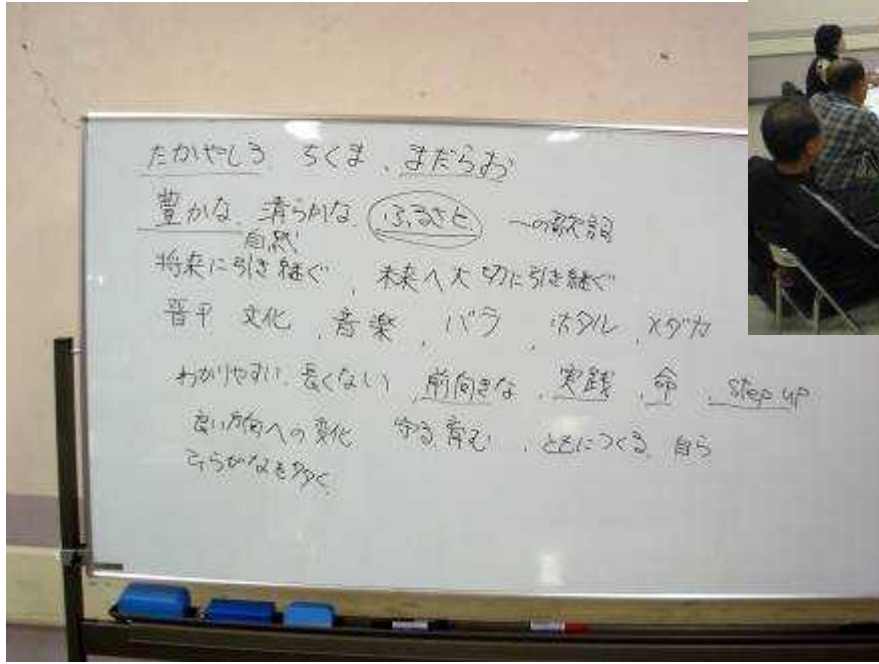 たかやしろ、ちくま、まだらお
豊かな、清らかな、ふるさと、〜の歌詞
自然
将来に引き継ぐ、未来へ大切に引き継ぐ
晋平 文化、音楽、バラ、ホタル、メダカ
わかりやすい、長くない、前向きな、実践、命、step up
良い方向への変化 守る、育む、ともにつくる、自ら
ひらがなを多く